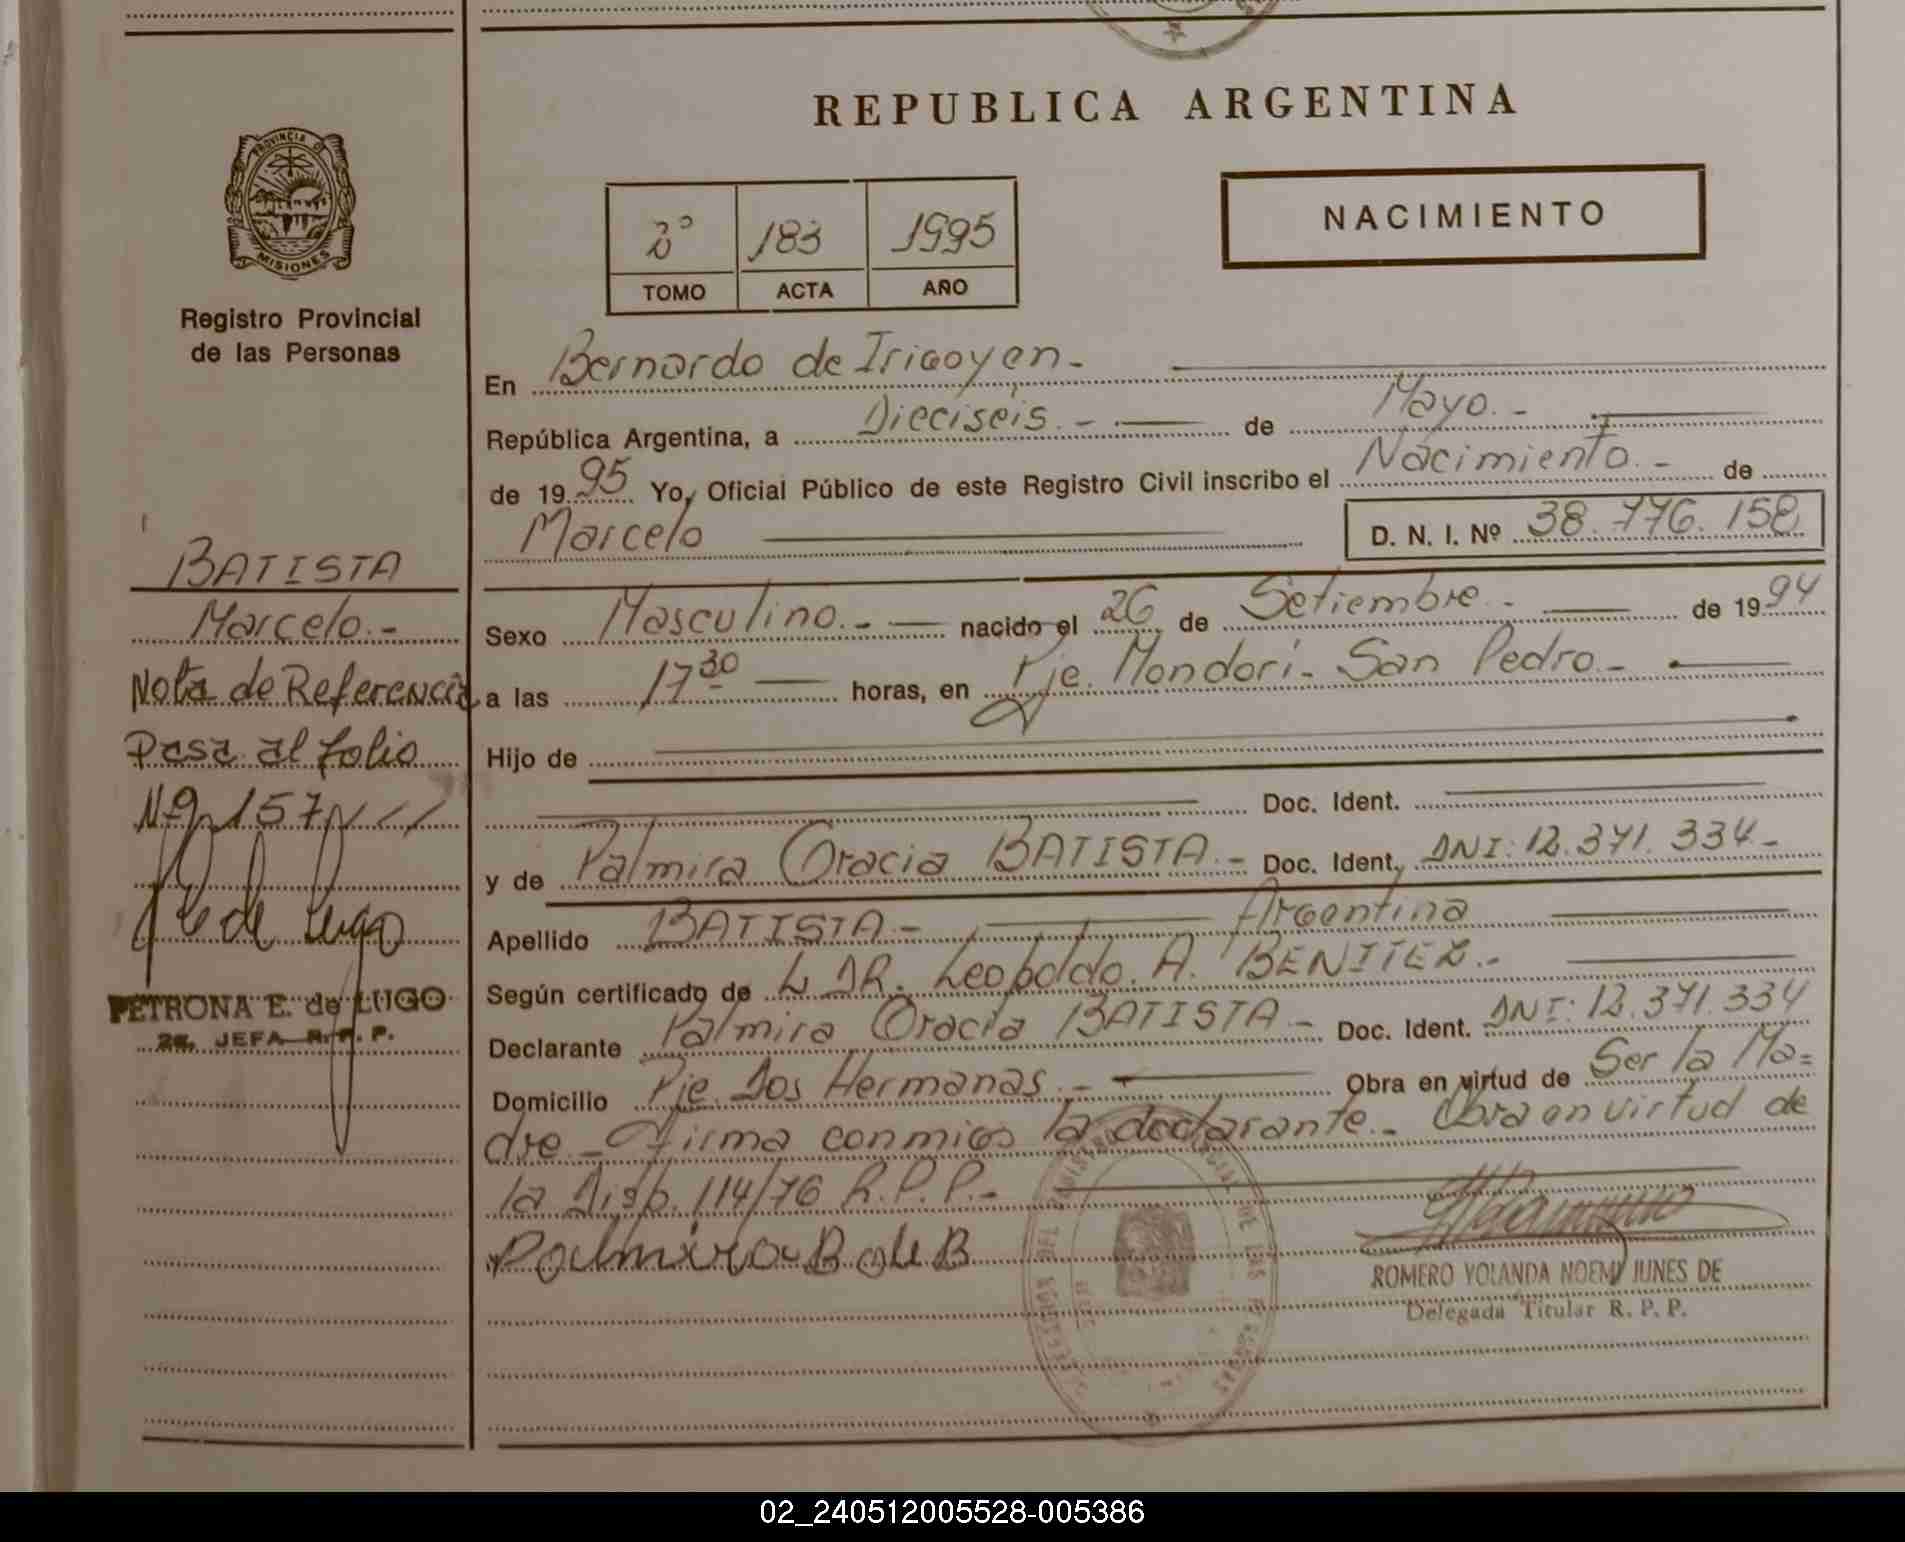 REPUBLICA ARGENTINA
PROVINCIA DE
MISIONES
Registro Provincial
de las Personas
2º 183 1995
TOMO ACTA AÑO
NACIMIENTO
En Bernardo de Irigoyen.-
República Argentina, a Dieciséis.- de Mayo.-
de 1995 Yo, Oficial Público de este Registro Civil inscribo el Nacimiento.- de
Marcelo D. N. I. Nº 38.776.158
Sexo Masculino.- nacido el 26 de Setiembre.- de 1994
a las 17 30 horas, en Pje. Mondori- San Pedro.-
Hijo de
Doc. Ident.
y de Palmira Gracia BATISTA.- Doc. Ident. DNI: 12.371.334.-
Apellido BATISTA.- Argentina
Según certificado de DR. Leopoldo. A. BENITEZ.-
Declarante Palmira Gracia BATISTA.- Doc. Ident. DNI: 12.371.334
Domicilio Pje. Dos Hermanas.- Obra en virtud de Ser la Ma=
dre.- Firma conmigo la declarante.- Obra en virtud de
la Disp. 114/76 R.P.P.-
Palmira B de B
ROMERO YOLANDA NOEMI JUNES DE
Delegada Titular R. P. P.
BATISTA
Marcelo.-
Nota de Referencia
Pasa al folio
Nº 157
de Lugo
PETRONA E. de LUGO
2ª. JEFA R. P. P.
02_240512005528-005386